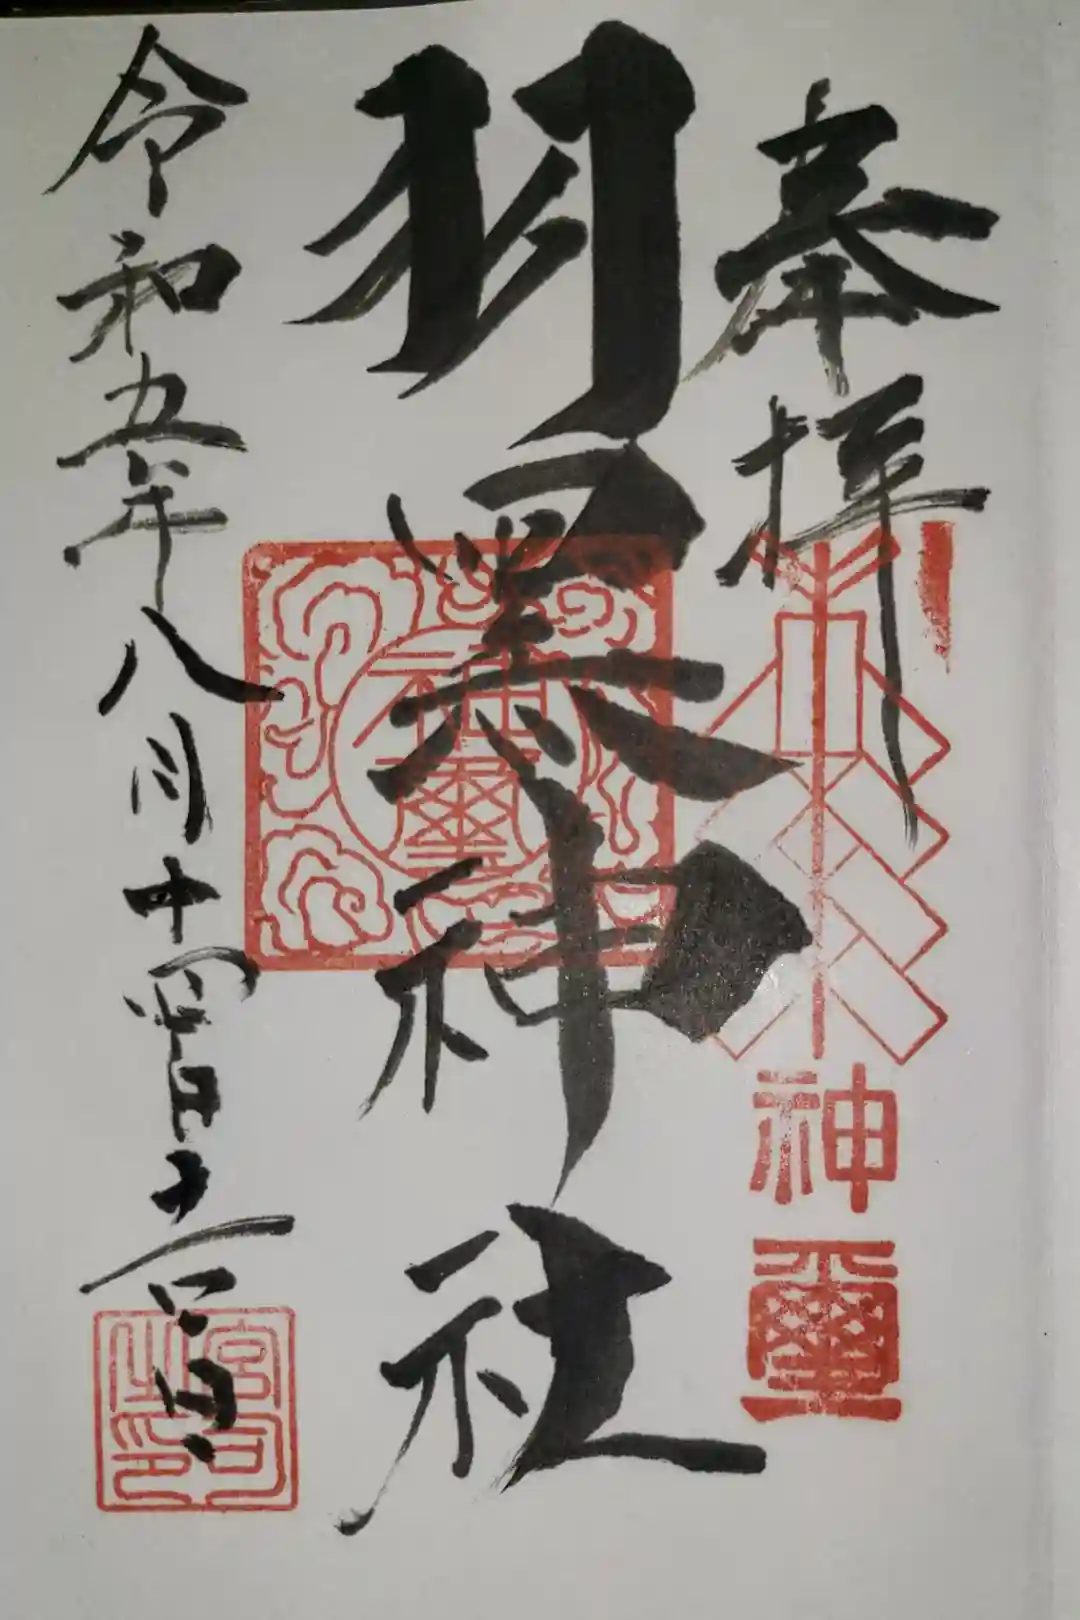 奉拝
神璽
羽黒神社
神璽
令和五年八月十
吉日
宮司之印